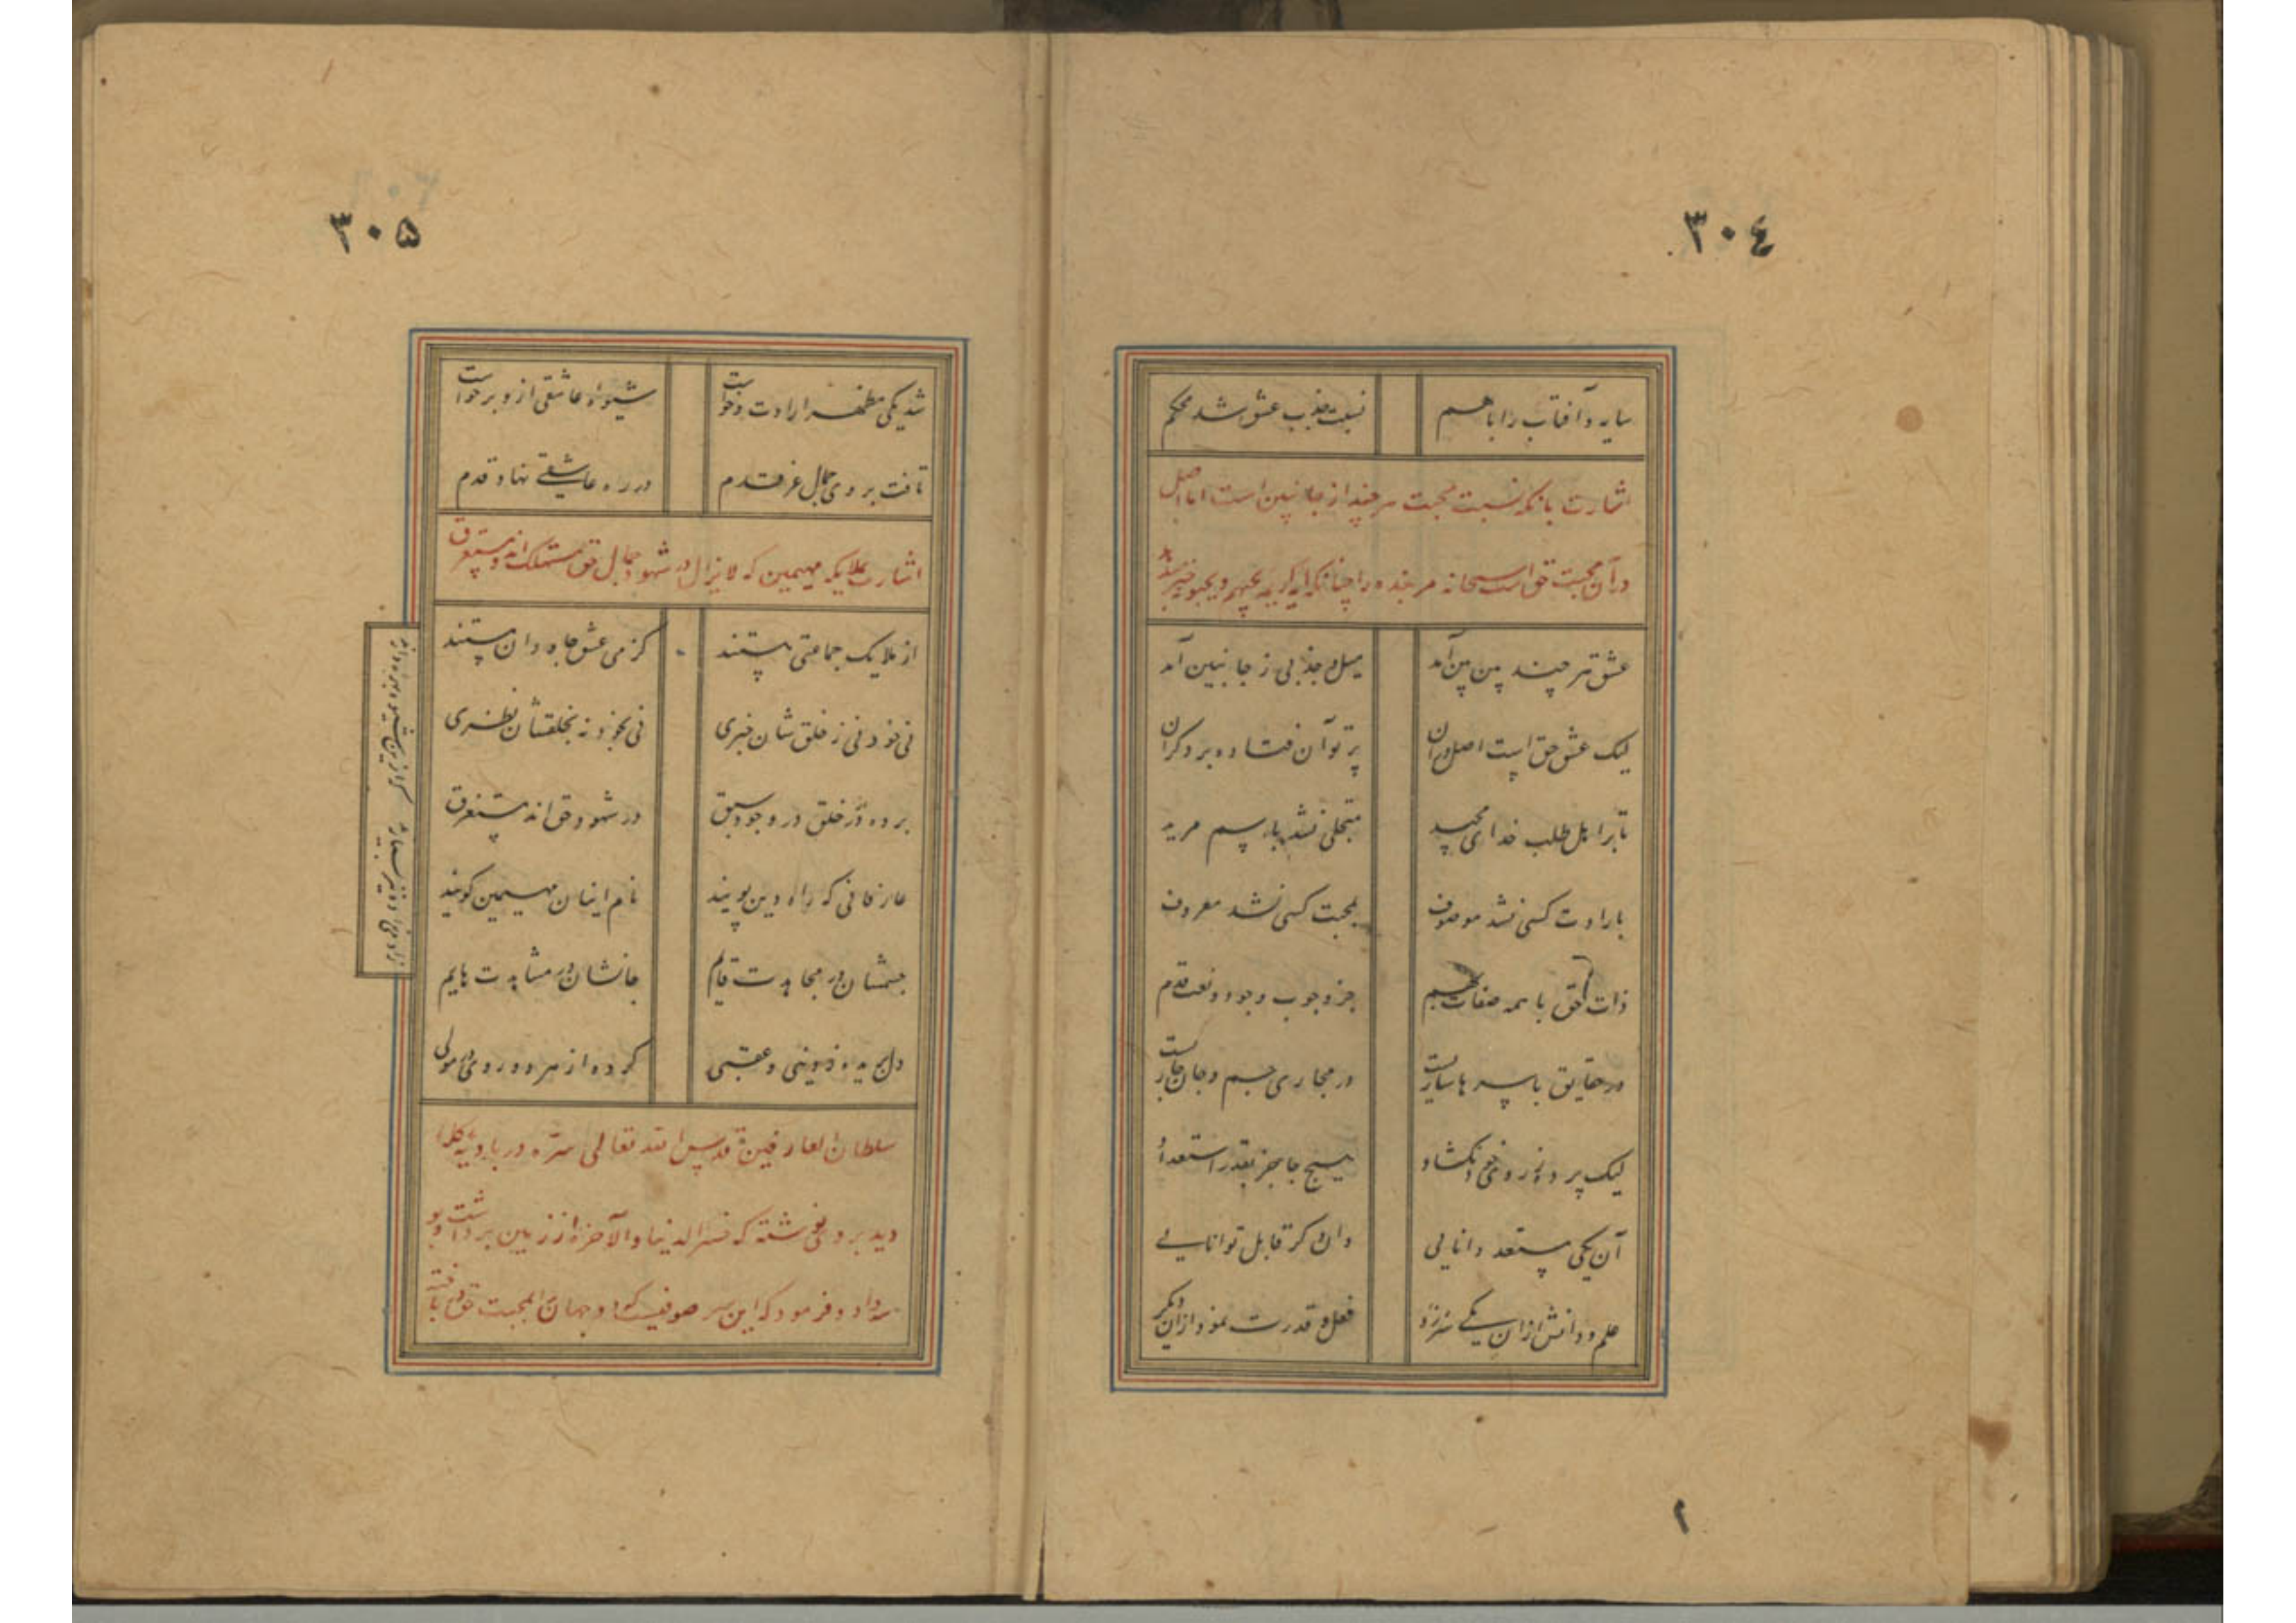 ٣٠٤
سایه و آفتاب را با هم نسبت جذب عشق شد محکم
اشارت بآنکه نسبت محبت هر چند از جانبین است اما اصل
در آن محبت حق است سبحانه مر بنده را چنانکه آیه کریمه یحبهم و یحبونه
عشق هر چند بین بین آمد میل و جذبی ز جانبین آمد
لیک عشق حق است اصل در آن پرتو آن فتاده بر دکران
تا بر اهل طلب خدای مجید متجلی نشد باسم مرید
بارادت کسی نشد موصوف بمحبت کسی نشد معروف
ذات حق با همه صفات بهم جز وجوب وجود و نعت قدم
در حقایق باسرها ساریست در مجاری جسم و جان جاریست
لیک پرده ز روی خود نکشاد هیچ جا جز بقدر استعداد
آن یکی مستعد دانایی وان دکر قابل توانایی
علم و دانش ازان یکی سر زد فعل و قدرت نمود ازان دیکر
٢
٣٠۵
شد یکی مظهر ارادت و خواست شیوه عاشقی ازو برخواست
تافت بر وی جمال عز قدم در راه عاشقی نهاد قدم
اشارت بملایکه مهیمین که لایزال در شهود جمال حق مستهلک اند و مستغرق
از ملایک جماعتی هستند کز می عشق جاودان مستند
نی ز خود نی ز خلق شان خبری نی بخود نه بخلقشان نظری
برده از خلق در وجود سبق در شهود حق اند مستغرق
عارفانی که راه دین پویند نام اینان مهیمین کویند
جسمشان در مجاهدت قایم جانشان در مشاهدت هایم
دل بریده ز دنیی و عقبی کرده از هر دو روی در مولی
سلطان العارفین قدس الله تعالی سره در بادیه کله
دید بر وی نوشته که خسر الدنیا و الآخرة از زمین برداشت و بو
سه داد و فرمود که این سر صوفیست که دو جهان در محبت حق در باخته